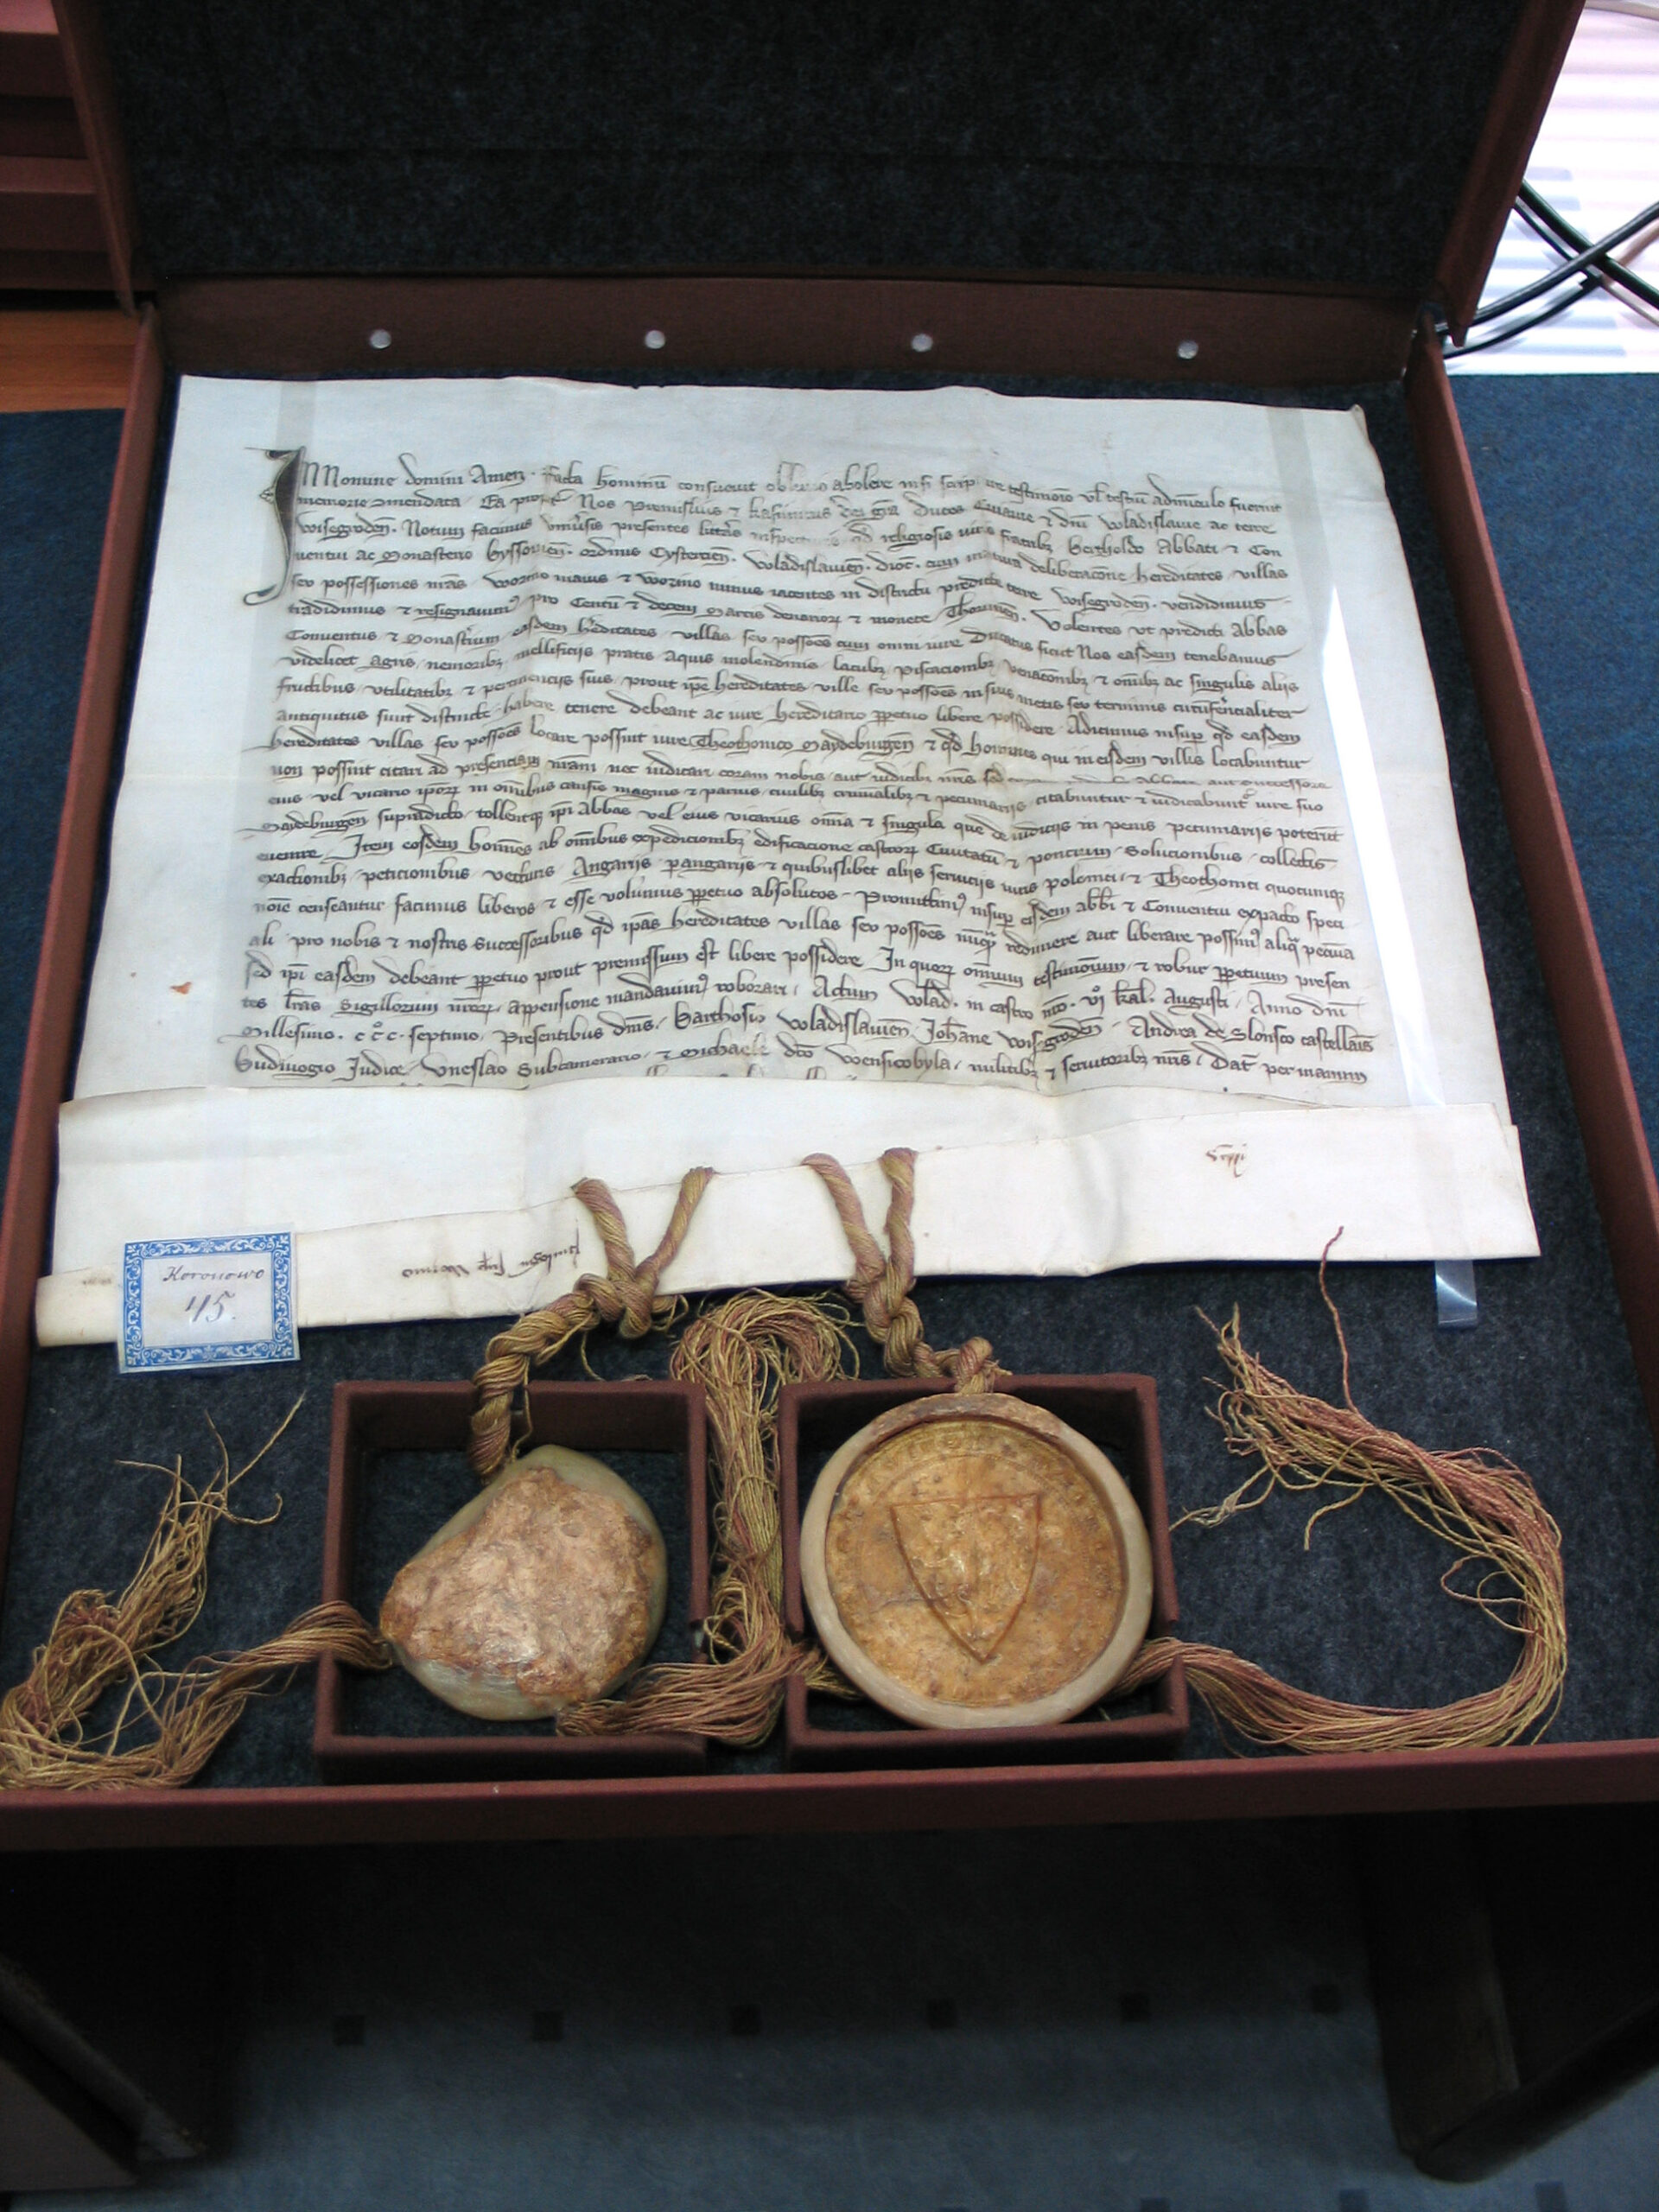 In Nomine domini Amen. Facta hominū consuevit oblivio abolere nisi script testimonio vl testiū adminiculo fuerint
memorie Nos Premislius ⁊ kasimirus dei gr̄a Duces Cuiavie ⁊ dn̄i wladislavie ac terre
wisegroden. Notum facimus univ̄sis presentes litt̄as qd religiosis viris fratribꝫ Bertholdo Abbati ⁊ Con
ventui ac Monasterio Byssovien̄. ordinis Cystercien̄. wladislavien̄. dioc̄. cum matura deliberac̄one hereditates villas
seu possessiones nr̄as worino maius ⁊ worino minus iacentes in districtu predicte terre wisegroden̄. vendidimus
tradidimus ⁊ resignavimꝰ pro Centū ⁊ decem Marcis denarioꝝ ⁊ monete Thorunen̄. Volentes ut predicti Abbas
Conventus ⁊ Monast̄ium easdem h̄editates villas seu poss̄oes cum omni iure Ducatus sicut Nos easdem tenebamus
videlicet agris nemoribꝫ mellificijs pratis aquis molendinis lacubꝫ piscac̄ionibꝫ venac̄onibꝫ ⁊ om̄ibꝫ ac singulis aliis
fructibus utilitatibꝫ ⁊ pertinencijs suis prout ip̄e hereditates ville seu poss̄oes in suis metis seu terminis circūfer̄ncialiter
antiquitus sunt distincte habere tenere debeant ac iure hereditario ꝑpetuo libere possidere Adicimus insuꝑ qd easdem
hereditates villas seu poss̄oes locare possint iure Theothonico Maydeburgen̄ ⁊ qd homines qui in eisdem villis locabuntur
non possint citari ad presenciam nr̄am nec iudicari coram nobis aut iudicibꝫ nr̄is sed Abbate aut successore
eius vel vicario ip̄oꝝ in om̄ibus causis magnis ⁊ parvis civilibꝫ criminalibꝫ ⁊ pecuniarijs citabuntur ⁊ iudicabuntꝰ iure suo
Maydeburgen̄ sup̄adicto tollentqꝫ ip̄i Abbas vel eius vicarius om̄ia ⁊ singula que de iudicijs in penis pecuniarijs poterūt
evenire Item eosdem hom̄es ab om̄ibus expedicionibꝫ edificacione castroꝝ Civitatū ⁊ poncium Solucionibus collectis
exactionibꝫ peticionibus vecturis Angarijs ꝑangarijs ⁊ quibuslibet alijs servicijs iuris polonici ⁊ Theothonici quocunqꝫ
noīe censeantur facimus liberos ⁊ esse volumus ꝑpetuo absolutos Promittimꝰ insuꝑ eisdem abb̄i ⁊ Conventui ex pacto speci
ali pro nobis ⁊ nostris Successoribus qd ip̄as hereditates villas seu poss̄oes nūqꝫ redimere aut liberare possimꝰ aliq̄ pecūia
sed ip̄i easdem debeant ꝑpetuo prout premissum est libere possidere In quoꝝ omnium testimonium ⁊ robur ꝑpetuum presen
tes l̄ras Sigillorum nr̄oꝝ appensione mandavimꝰ roborari Actum wlad̄. in castro nr̄o. vjͦ kal̄. Augusti Anno dn̄i
Millesimo. cͦcͦc. septimo Presentibus dn̄is. Barthosio wladislavien̄ Joh̄ane wisgroden̄ Andrea de Slonsco castellan̄is
Sudiuogio Judice Uneslao Subcamerario ⁊ Michaele dc̄o voensicobyla militibꝫ ⁊ servitoribꝫ nr̄is Dat̄ per manum
Koronowo
45.